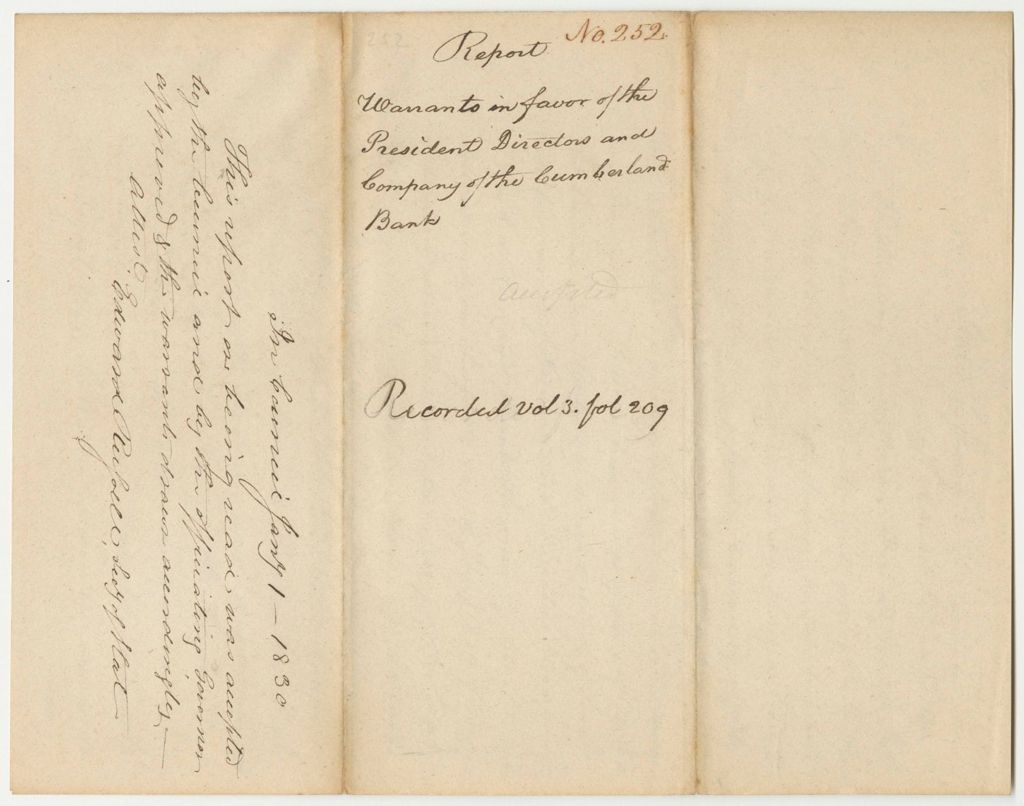 No. 252.
Report
Warrants in favor of the
President Directors and
Company of the Cumberland
Bank
accepted
Recorded vol 3. fol 209
In Council Jany 1 — 1830
This report on being read, was accepted
by the Council and by the officiating Governor
approved & the warrants drawn accordingly. —
Attest
Edward Russell, Secy of State